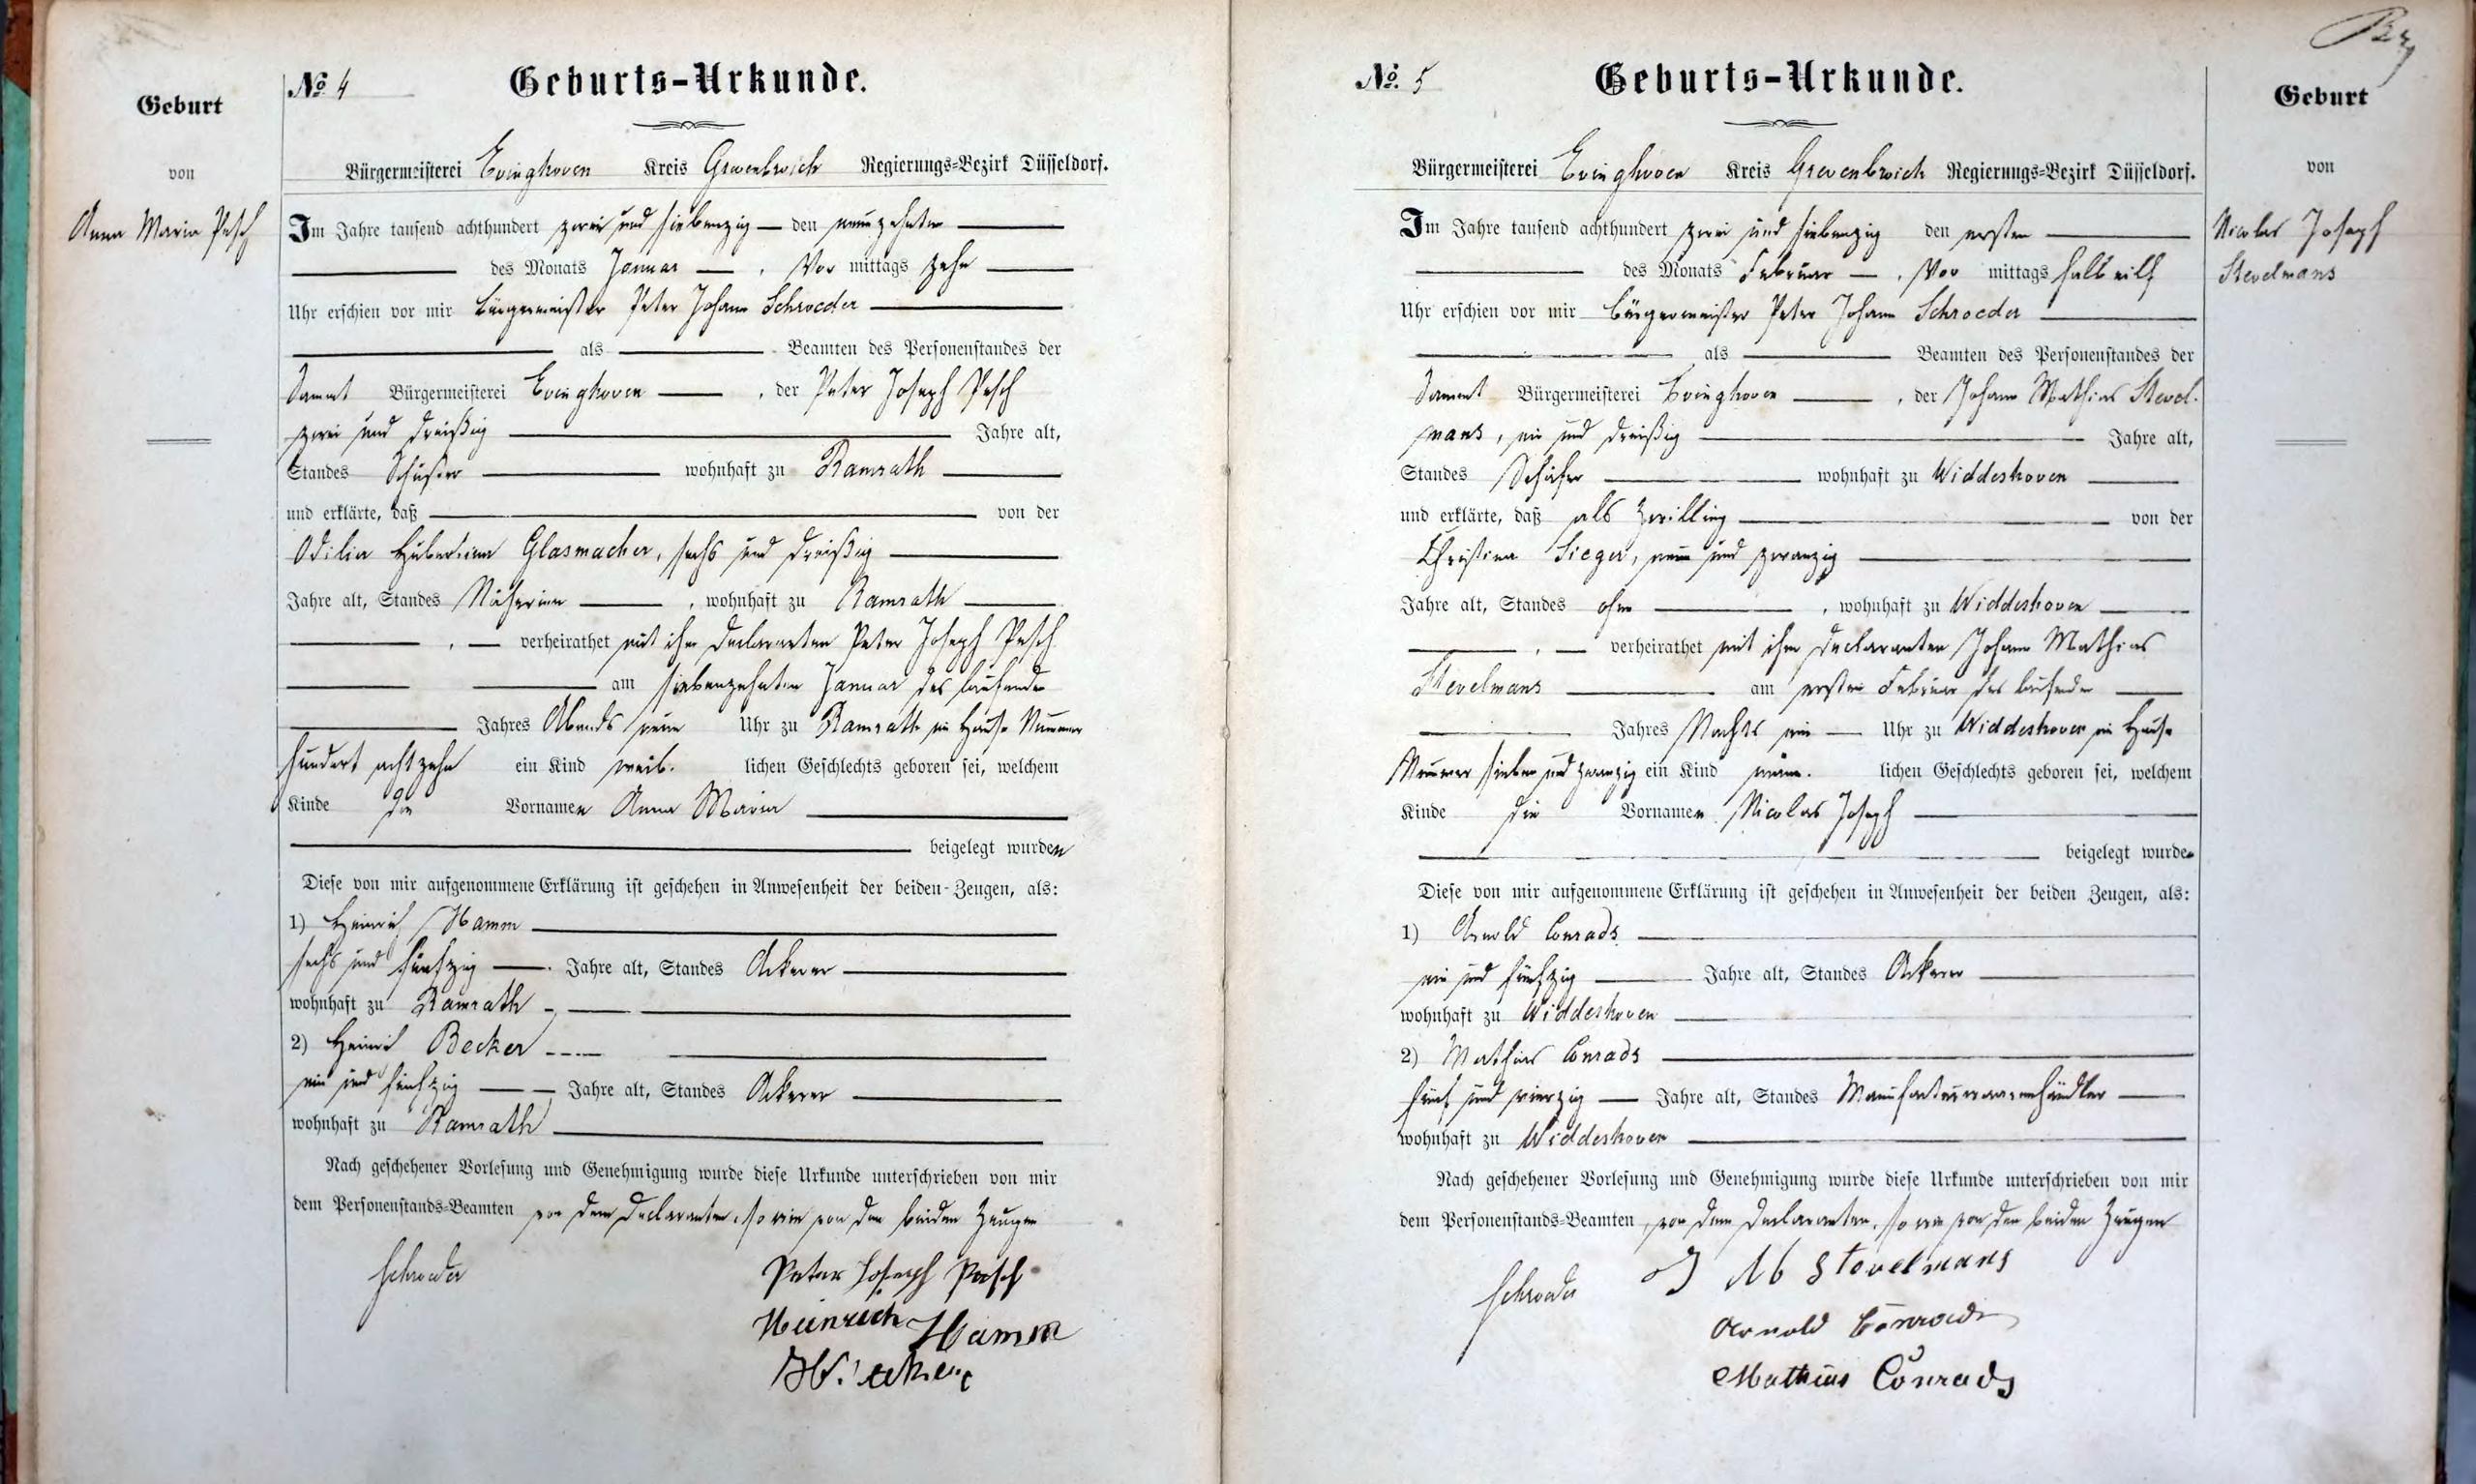 Geburt
von
Anna Maria Pesch
No. 4
Geburts-Urkunde.
Bürgermeisterei Evinghoven Kreis Grevenbroich Regierungs-Bezirk Düsseldorf.
Im Jahre tausend achthundert zwei und siebenzig den neunzehnten
des Monats Januar, Vor mittags zehn
Uhr erschien vor mir Bürgermeister Peter Johann Schroeder
als Beamten des Personenstandes der
Sammt Bürgermeisterei Evinghoven, der Peter Joseph Pesch
zwei und dreißig Jahre alt,
Standes Schuster wohnhaft zu Ramrath
und erklärte, daß von der
Odilia Hubertina Glasmacher, sechs und dreißig
Jahre alt, Standes Näherinn, wohnhaft zu Ramrath
, verheirathet mit ihm Declaranten Peter Joseph Pesch
am siebenzehnten Januar des laufenden
Jahres Abends neun Uhr zu Ramrath im Hause Nummer
hundert achtzehn ein Kind weib. lichen Geschlechts geboren sei, welchem
Kinde die Vornamen Anna Maria
beigelegt wurden
Diese von mir aufgenommene Erklärung ist geschehen in Anwesenheit der beiden Zeugen, als:
1) Heinrich Hamm
sechs und fünfzig Jahre alt, Standes Ackerer
wohnhaft zu Ramrath
2) Heinrich Becker
ein und fünfzig Jahre alt, Standes Ackerer
wohnhaft zu Ramrath
Nach geschehener Vorlesung und Genehmigung wurde diese Urkunde unterschrieben von mir
dem Personenstands-Beamten von dem Declaranten, so wie von den beiden Zeugen
Schroeder
Peter Joseph Pesch
Heinrich Hamm
No. 5
Geburts-Urkunde.
Bürgermeisterei Evinghoven Kreis Grevenbroich Regierungs-Bezirk Düsseldorf.
Im Jahre tausend achthundert zwei und siebenzig den ersten
des Monats Februar, Vor mittags halb eilf
Uhr erschien vor mir Bürgermeister Peter Johann Schroeder
als Beamten des Personenstandes der
Sammt Bürgermeisterei Evinghoven, der Johann Mathias Stevel-
mans, ein und dreißig Jahre alt,
Standes Schäfer wohnhaft zu Widdeshoven
und erklärte, daß als Zwilling von der
Christina Sieger, neun und zwanzig
Jahre alt, Standes ohne, wohnhaft zu Widdeshoven
, verheirathet mit ihm Declaranten Johann Mathias
Stevelmans am ersten Februar des laufenden
Jahres Nachts ein Uhr zu Widdeshoven im Hause
Nummer sieben und zwanzig ein Kind männ. lichen Geschlechts geboren sei, welchem
Kinde die Vornamen Nicolas Joseph
beigelegt wurde
Diese von mir aufgenommene Erklärung ist geschehen in Anwesenheit der beiden Zeugen, als:
1) Arnold Conrads
ein und fünfzig Jahre alt, Standes Ackerer
wohnhaft zu Widdeshoven
2) Mathias Conrads
fünf und vierzig Jahre alt, Standes Manufacturwaarenhändler
wohnhaft zu Widdeshoven
Nach geschehener Vorlesung und Genehmigung wurde diese Urkunde unterschrieben von mir
dem Personenstands-Beamten, von dem Declaranten, so wie von den beiden Zeugen
Schroeder
J M Stevelmans
Arnold Conrads
Mathias Conrads
Geburt
von
Nicolas Joseph
Stevelmans